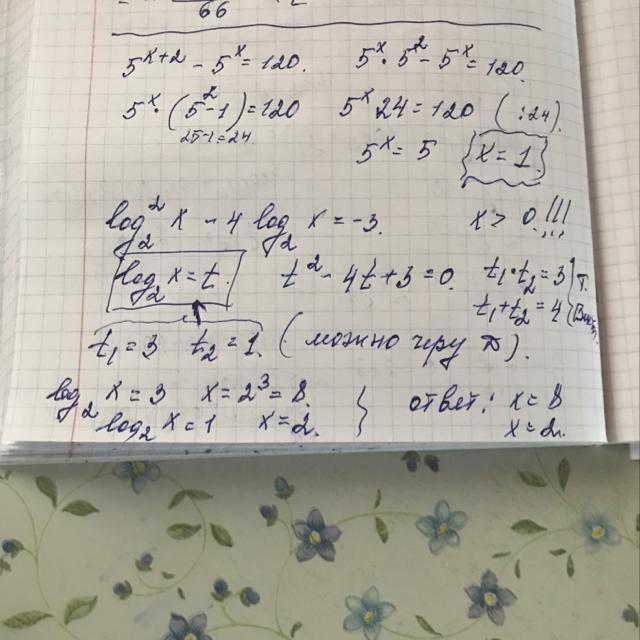 66
5^{x+2} - 5^x = 120. 5^x · 5^2 - 5^x = 120.
5^x · (5^2 - 1) = 120 5^x 24 = 120 (:24).
25-1=24.
5^x = 5 x = 1.
log_2^2 x - 4 log_2 x = -3. x > 0 !!!
log_2 x = t. t^2 - 4t + 3 = 0. t_1 · t_2 = 3 т.
t_1 + t_2 = 4
t_1 = 3 t_2 = 1. (можно черу D).
log_2 x = 3 x = 2^3 = 8. ответ: x = 8
log_2 x = 1 x = 2. x = 2.